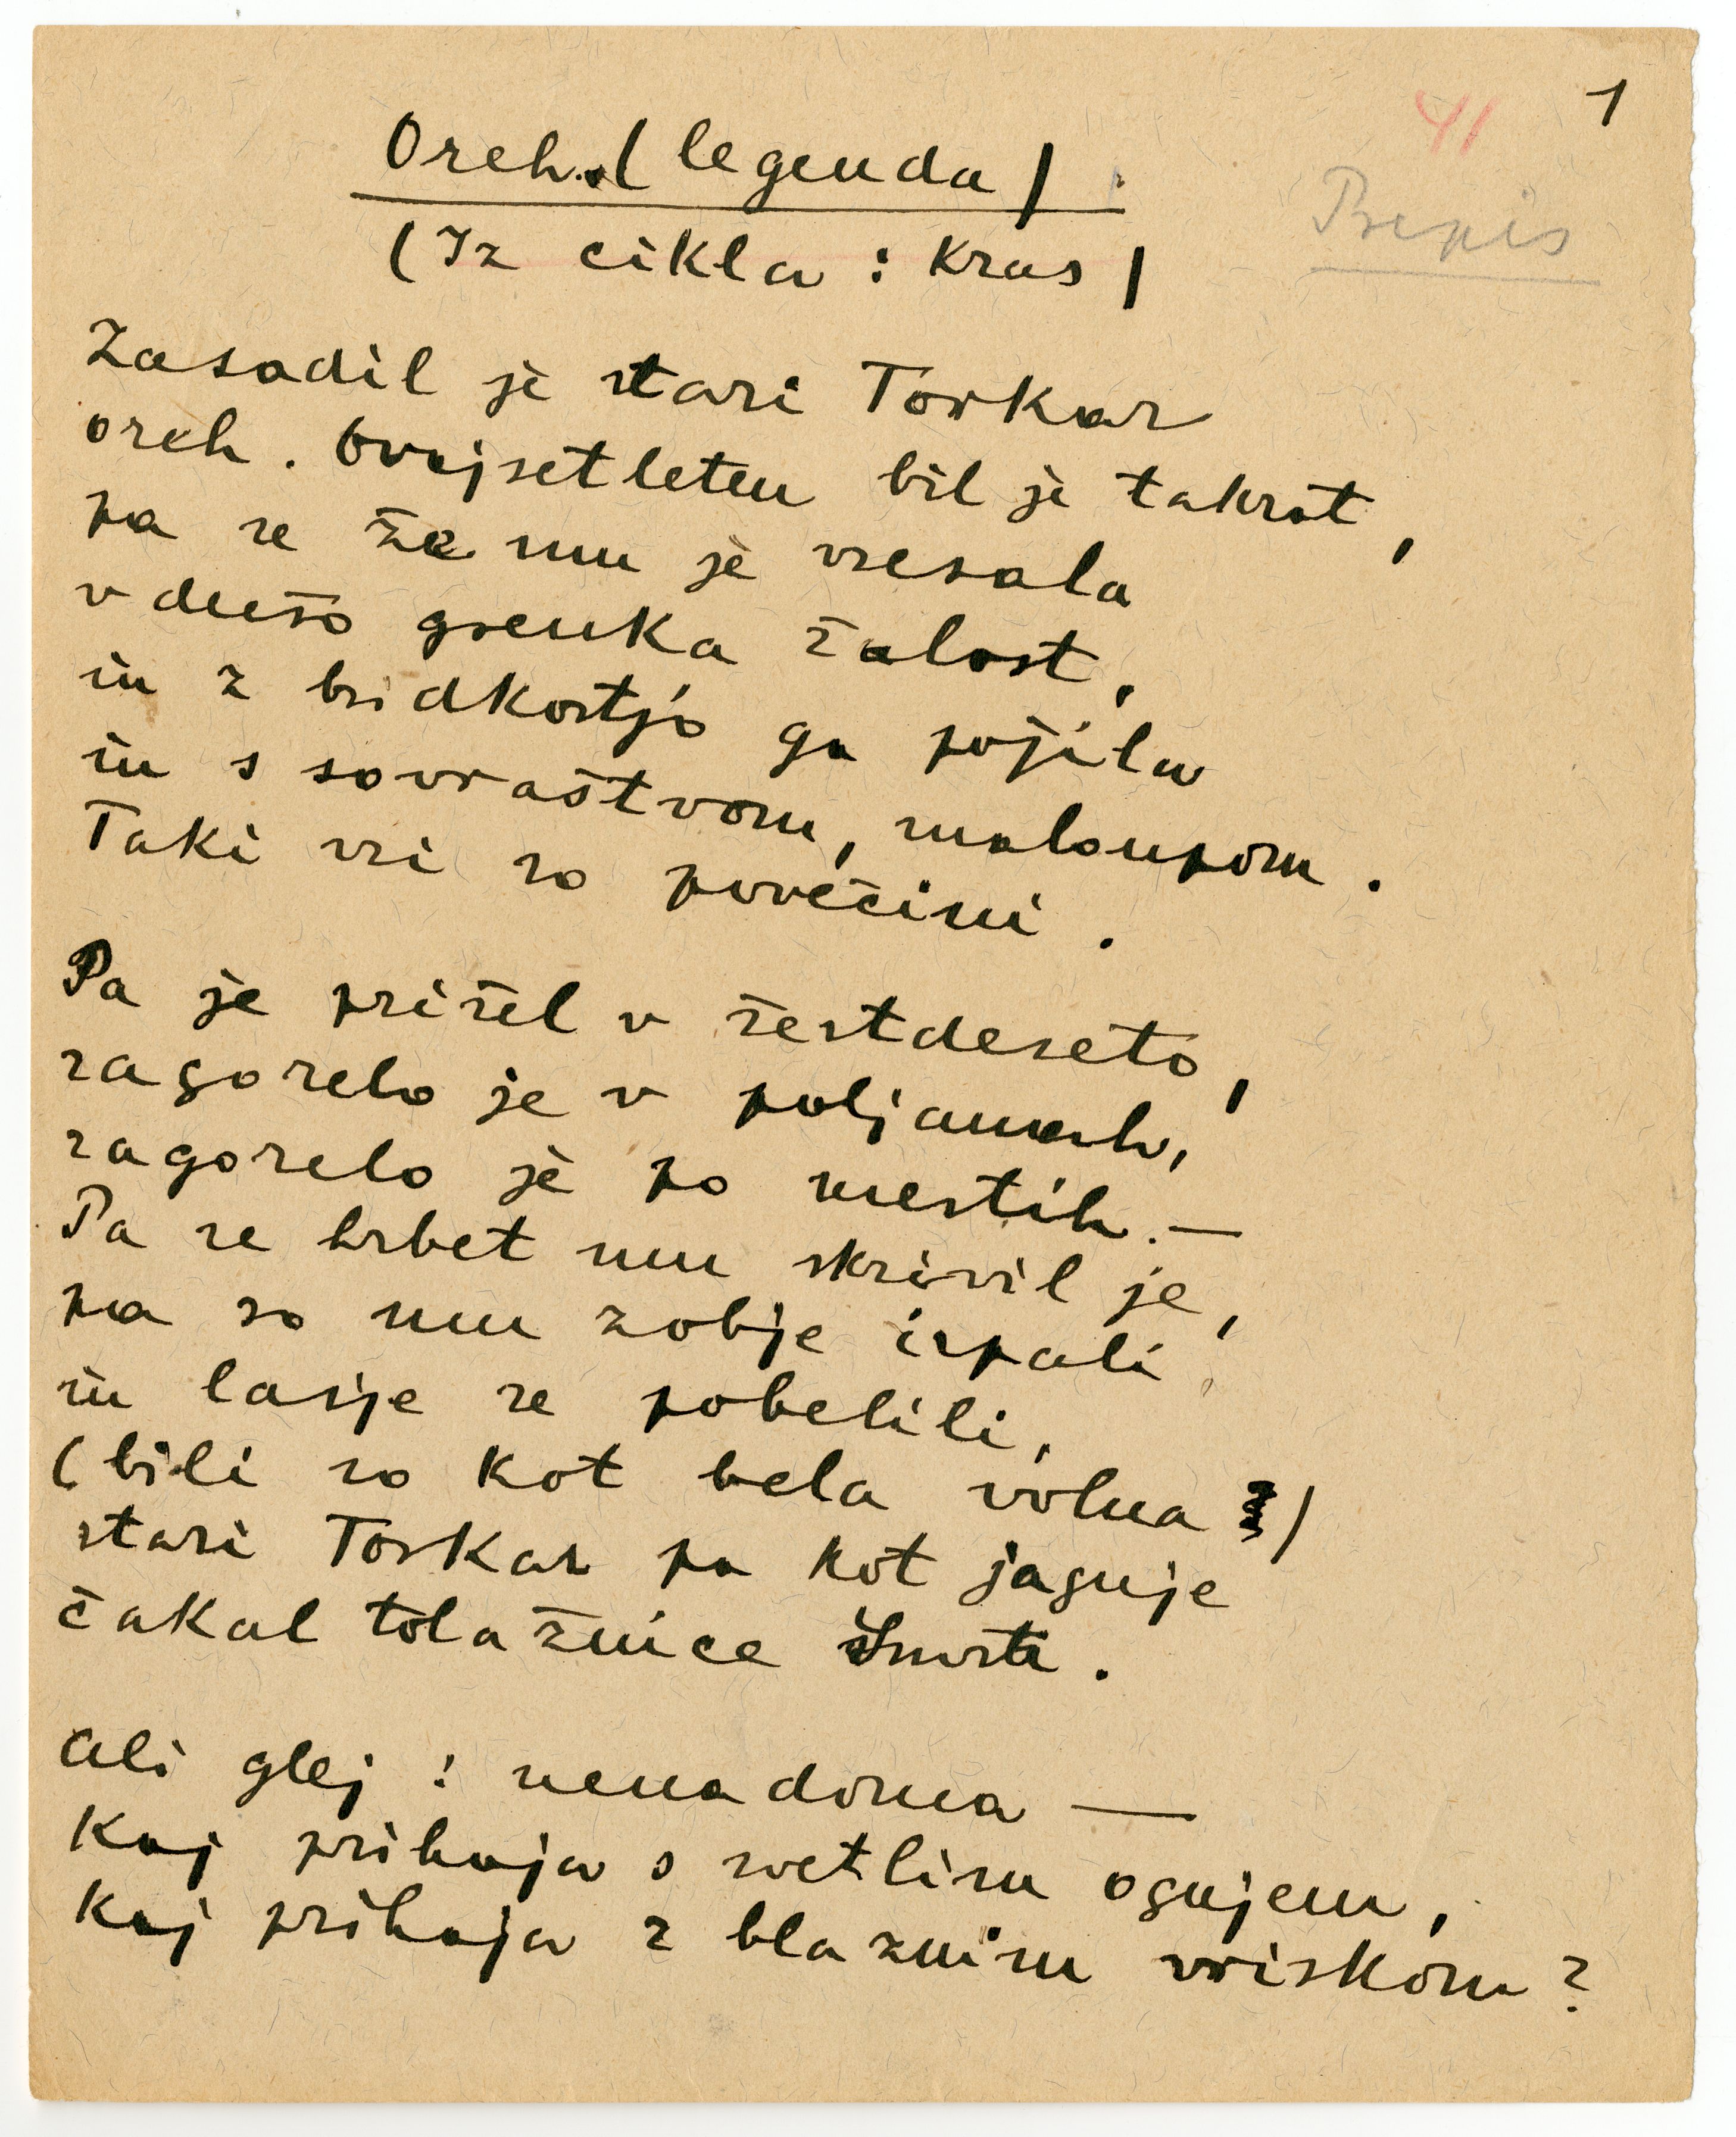 1
41
Prepis
Oreh. (legenda)
(Iz cikla: Kras)
Zasadil je stari Torkar
oreh. Dvajsetleten bil je takrat,
pa se že mu je vsesala
v dušo grenka žalost,
in z bridkostjo ga pojila
in s sovraštvom, maloupom.
Taki vsi so povečini.
Pa je prišel v šestdeseto,
zagorelo je v poljanah,
zagorelo je po mestih. —
Pa se hrbet mu skrivil je,
pa so mu zobje izpali,
in lasje se pobelili,
(bili so kot bela volna)
stari Torkar pa kot jagnje
čakal tolažnice Smrti.
Ali glej: nenadoma —
Kaj prihaja s svetlim ognjem,
Kaj prihaja z blaznim vriskom?